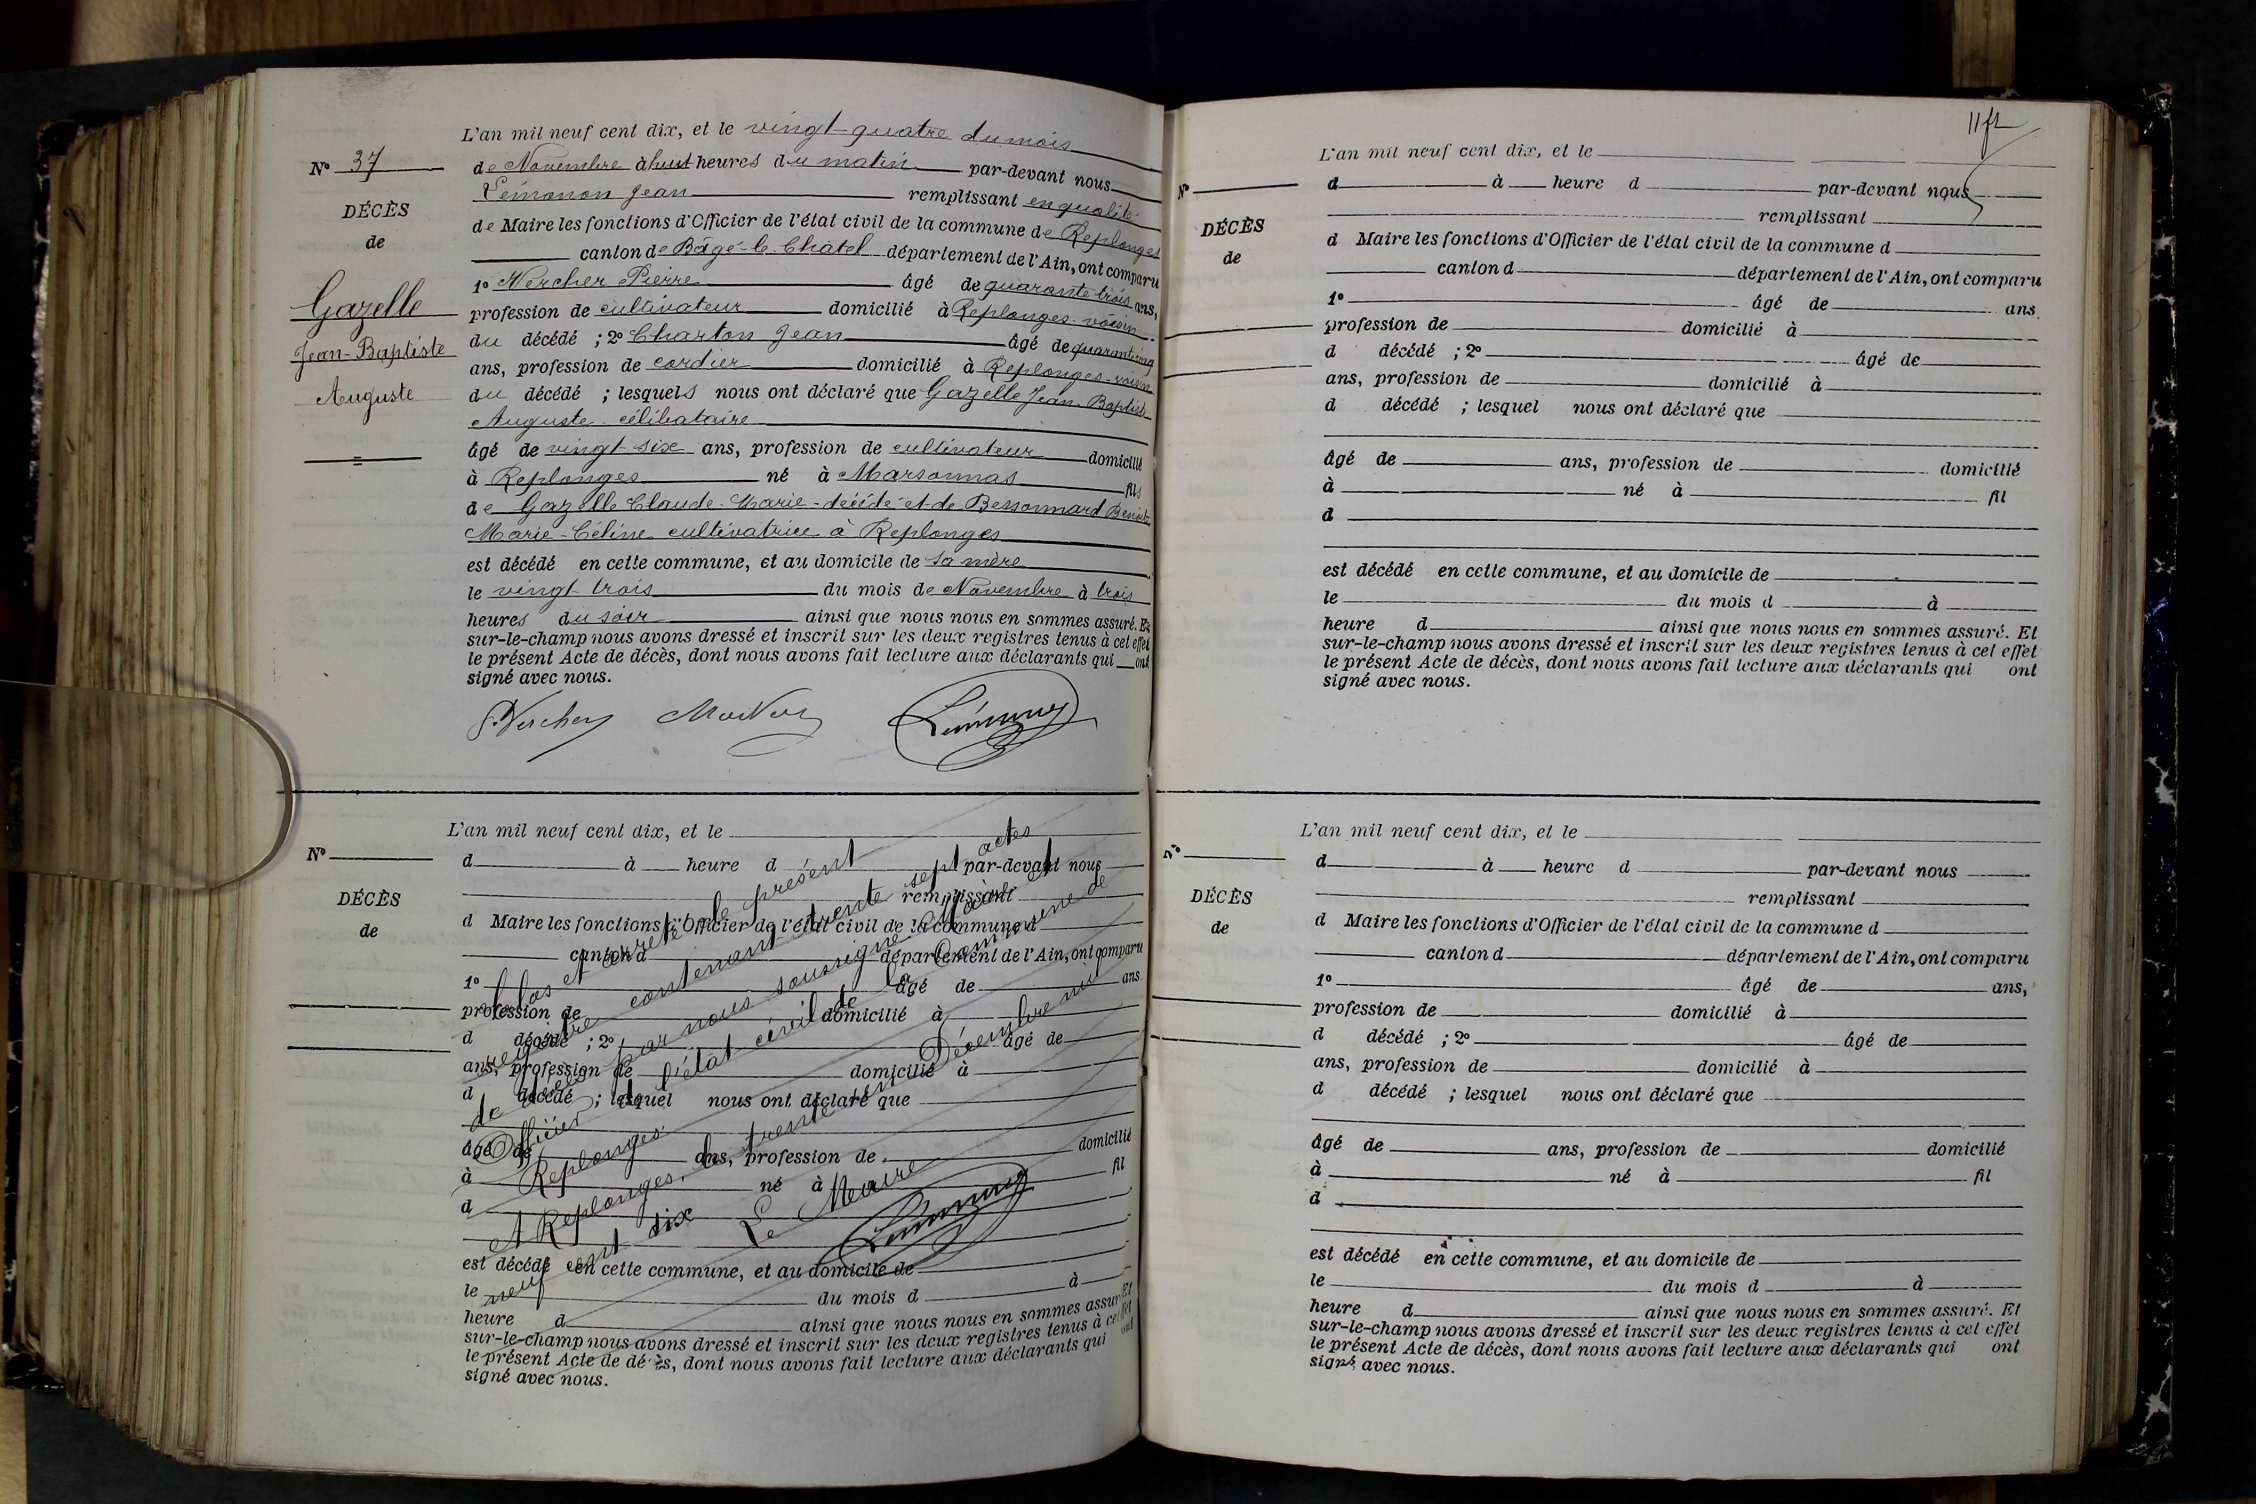 L'an mil neuf cent dix, et le vingt-quatre du mois
N° 37
de Novembre à huit heures du matin par-devant nous
Lémonon Jean remplissant en qualité
DÉCÈS
de Maire les fonctions d'Officier de l'état civil de la commune de Replonges
de
canton de Bâgé-le-Châtel département de l'Ain, ont comparu
1° Vercher Pierre âgé de quarante trois ans,
Gazelle
profession de cultivateur domicilié à Replonges voisin
du décédé ; 2° Charton Jean âgé de quarante cinq
Jean-Baptiste
ans, profession de cordier domicilié à Replonges voisin
Auguste
du décédé ; lesquels nous ont déclaré que Gazelle Jean Baptiste
Auguste célibataire
âgé de vingt six ans, profession de cultivateur domicilié
à Replonges né à Marsonnas fils
de Gazelle Claude-Marie décédé et de Bessonnard Benoite
Marie-Céline cultivatrice à Replonges
est décédé en cette commune, et au domicile de sa mère
le vingt trois du mois de Novembre à trois
heures du soir ainsi que nous nous en sommes assuré. Et
sur-le-champ nous avons dressé et inscrit sur les deux registres tenus à cet effet
le présent Acte de décès, dont nous avons fait lecture aux déclarants qui ont
signé avec nous.
P. Vercher Lémonon
L'an mil neuf cent dix, et le
N°
d à heure d par-devant nous
remplissant
DÉCÈS
d Maire les fonctions d'Officier de l'état civil de la commune d
de
canton d département de l'Ain, ont comparu
1° âgé de ans
profession de domicilié à
d décédé ; 2° âgé de
ans, profession de domicilié à
d décédé ; lesquel nous ont déclaré que
âgé de ans, profession de domicilié
à né à fil
d
est décédé en cette commune, et au domicile de
le du mois d à
heure d ainsi que nous nous en sommes assuré. Et
sur-le-champ nous avons dressé et inscrit sur les deux registres tenus à cet effet
le présent Acte de décès, dont nous avons fait lecture aux déclarants qui ont
signé avec nous.
Clos et arrêté le présent
registre contenant trente sept actes
de décès par nous soussigné Maire et
Officier de l'état civil de la commune de
Replonges.
A Replonges, le trente un Décembre mil
neuf cent dix
Le Maire
Lémonon
L'an mil neuf cent dix, et le
N°
d à heure d par-devant nous
remplissant
DÉCÈS
d Maire les fonctions d'Officier de l'état civil de la commune d
de
canton d département de l'Ain, ont comparu
1° âgé de ans.
profession de domicilié à
d décédé ; 2° âgé de
ans, profession de domicilié à
d décédé ; lesquel nous ont déclaré que
âgé de ans, profession de domicilié
à né à fil
d
est décédé en cette commune, et au domicile de
le du mois d à
heure d ainsi que nous nous en sommes assuré. Et
sur-le-champ nous avons dressé et inscrit sur les deux registres tenus à cet effet
le présent Acte de décès, dont nous avons fait lecture aux déclarants qui ont
signé avec nous.
L'an mil neuf cent dix, et le
N°
d à heure d par-devant nous
remplissant
DÉCÈS
d Maire les fonctions d'Officier de l'état civil de la commune d
de
canton d département de l'Ain, ont comparu
1° âgé de ans,
profession de domicilié à
d décédé ; 2° âgé de
ans, profession de domicilié à
d décédé ; lesquel nous ont déclaré que
âgé de ans, profession de domicilié
à né à fil
d
est décédé en cette commune, et au domicile de
le du mois d à
heure d ainsi que nous nous en sommes assuré. Et
sur-le-champ nous avons dressé et inscrit sur les deux registres tenus à cet effet
le présent Acte de décès, dont nous avons fait lecture aux déclarants qui ont
signé avec nous.